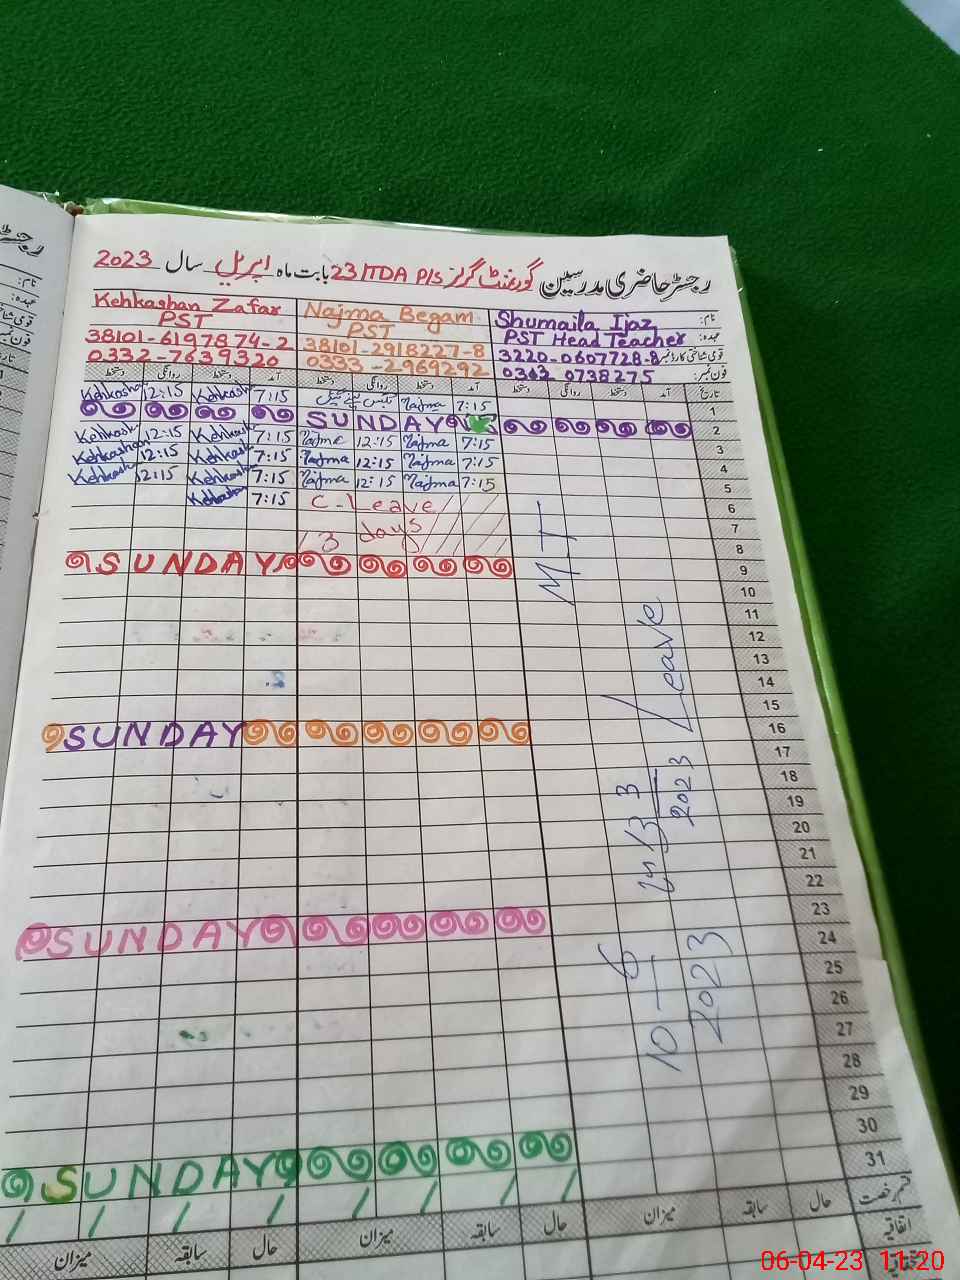 رجسٹر حاضری مدرسین گورنمنٹ گرلز P/S ITDA 23 بابت ماہ اپریل سال 2023
نام: Shumaila Ijaz Najma Begam Kehkashan Zafar
عہدہ: PST Head Teacher PST PST
قومی شناختی کارڈ نمبر 3220-0607728-8 38101-2918227-8 38101-6197874-2
فون نمبر: 0333-2969292 0332-7639320
تاریخ آمد دستخط روانگی دستخط آمد دستخط روانگی دستخط آمد دستخط روانگی دستخط
1 7:15 Najma 7:15 Kehkashan 12:15 Kehkashan
2 SUNDAY
3 7:15 Najma 12:15 Najma 7:15 Kehkashan 12:15 Kehkashan
4 7:15 Najma 12:15 Najma 7:15 Kehkashan 12:15 Kehkashan
5 7:15 Najma 12:15 Najma 7:15 Kehkashan 12:15 Kehkashan
6 C-Leave 7:15 Kehkashan
7 3 days
8
9 SUNDAY
10
11
12
13
14
15
16 SUNDAY
17
18
19
20
21
22
23
24 SUNDAY
25
26
27
28
29
30
31 SUNDAY
MT Leave
3
2023
10-6
2023
قسم رخصت
اتفاقیہ حال سابقہ میزان حال سابقہ میزان حال سابقہ میزان
06-04-23 11:20